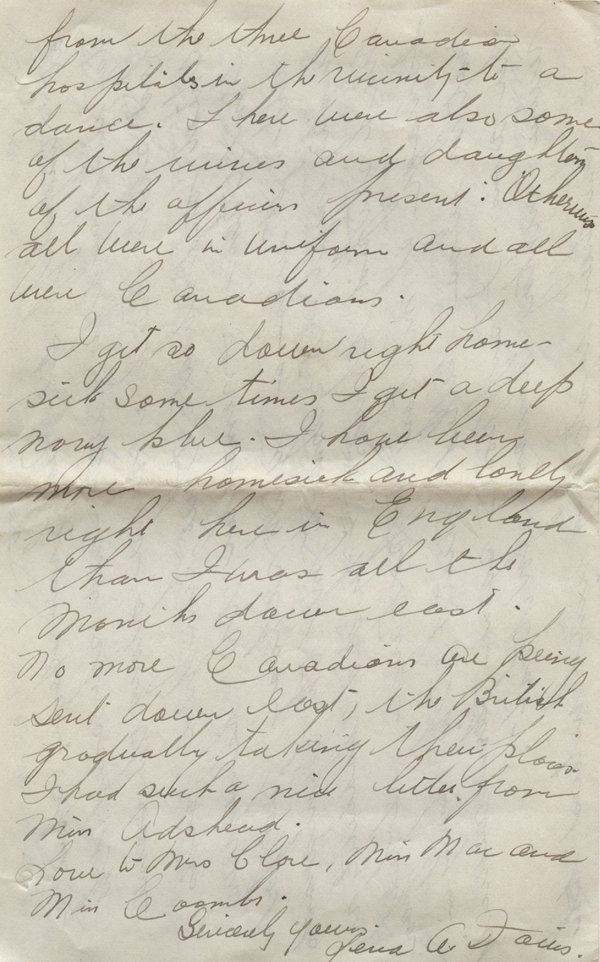 from the three Canadian
hospitals in the vicinity to a
dance. There were also some
of the wives and daughters
of the officers present. Otherwise
all were in uniform and all
were Canadians.
I get so down right home-
sick some times I get a deep
navy blue. I have been
more homesick and lonely
right here in England
than I was all the
months down east.
No more Canadians are being
sent down east, the British
gradually taking their places
I had such a nice letter from
Miss Adshead.
Love to Mrs Clore, Miss Mac and
Miss Coombs.
Sincerely yours.
Lena A Davis.